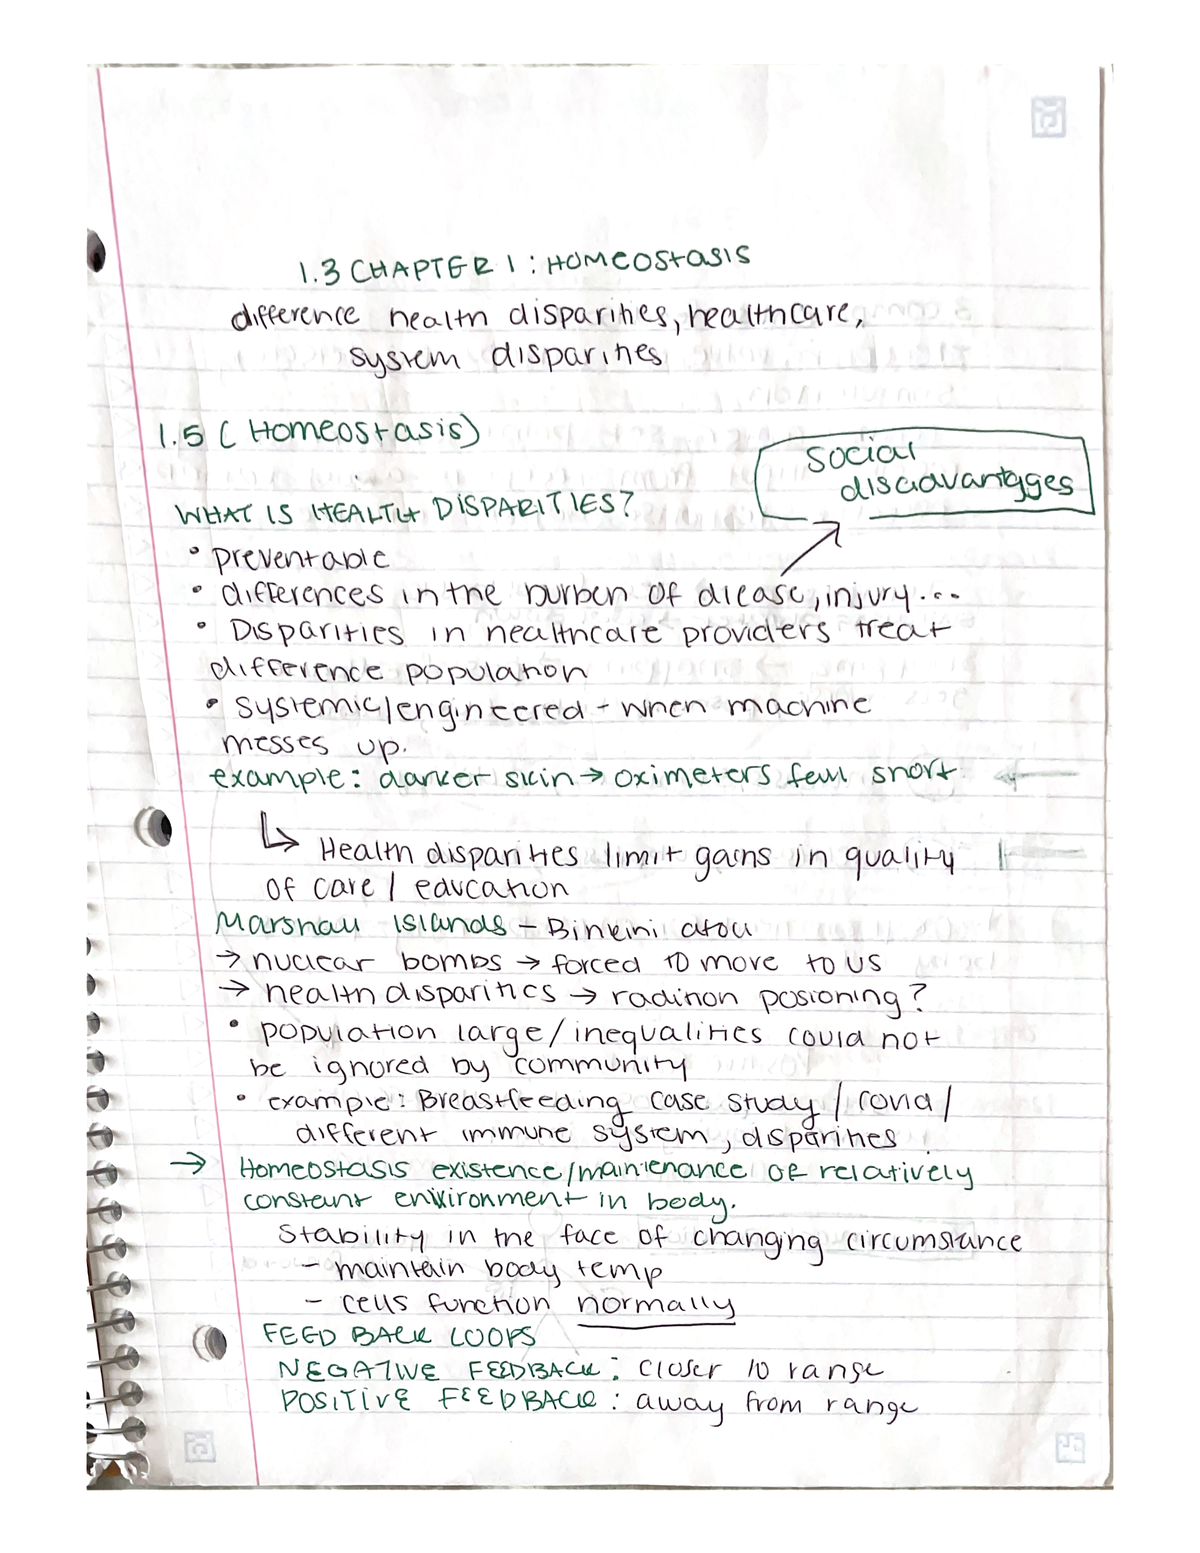 1.3 CHAPTER 1 : HOMEOSTASIS
difference health disparities, healthcare,
system disparities
1.5 ( Homeostasis)
social
disadvantgges
WHAT IS HEALTH DISPARITIES?
• preventable
• differences in the burben of diease, injury...
• Disparities in healthcare providers treat
difference population
• systemic/engineered - when machine
messes up.
example: darker skin → oximeters fell short
↳ Health disparities limit gains in quality
of care / education
Marshall Islands - Binkini atoll
→ nuclear bombs → forced to move to US
→ health disparities → radition posioning?
• population large/inequalities could not
be ignored by community
• example: Breastfeeding case study / covid /
different immune system, disparities
→ Homeostasis existence/maintenance of relatively
constant environment in body.
Stability in the face of changing circumstance
- maintain body temp
- cells function normally
FEED BACK LOOPS
NEGATIVE FEEDBACK: closer to range
POSITIVE FEEDBACK: away from range